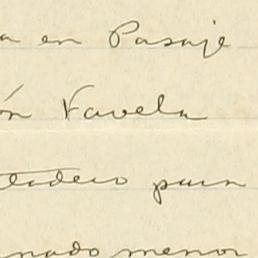 a en Pasaje
ón Varela
tadero para
nado menor